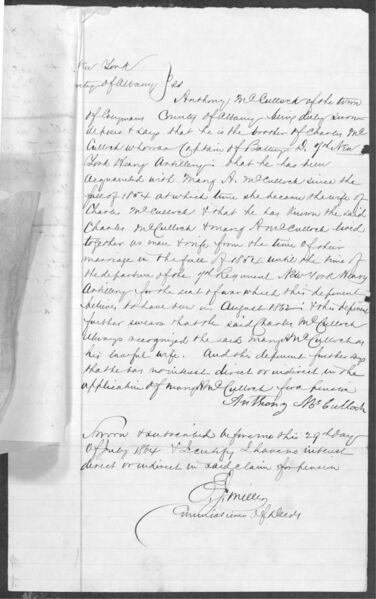 New York
County of Albany } ss
Anthony McCulloch of the town
of Coeymans County of Albany being duly sworn
deposes & says that he is the brother of Charles Mc
Culloch who was Captain of Battery D. 7th New
York Heavy Artillery: that he has been
acquainted with Mary A. McCulloch since the
fall of 1854 at which time she became the wife of
Charles McCulloch & that he has known the said
Charles McCulloch & Mary A McCulloch lived
together as man & wife from the time of their
marriage in the fall of 1854 until the time of
the departure of the 7th Regiment New York Heavy
Artillery for the seat of war which this deponent
believes to have been in August 1862: & this deponent
further swears that the said Charles McCulloch
always recognized the said Mary A McCulloch as
his lawful wife. And this deponent further says
that he has no interest direct or indirect in the
application of Mary A McCulloch for a pension
Anthony McCulloch
Sworn & subscribed before me this 29th day
of July 1864 & I certify I have no interest
direct or indirect in said claim for pension
Miller
Commissioner of Deeds